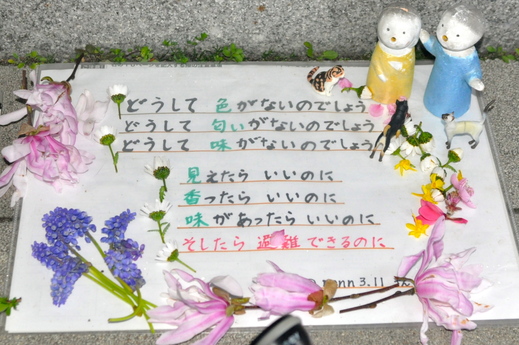 どうして 色がないのでしょう
どうして 匂いがないのでしょう
どうして 味がないのでしょう
見えたら いいのに
香ったら いいのに
味があったら いいのに
そしたら 避難できるのに
3.11